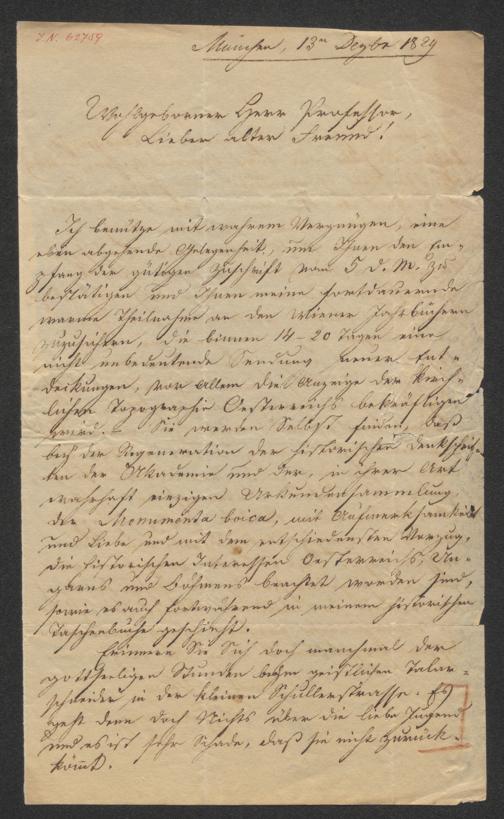 I.N. 62759
München, 13n Dezbr 1829
Wohlgeborner Herr Professor,
Lieber alter Freund!
Ich benütze mit wahrem Vergnügen, eine
eben abgehende Gelegenheit, um Ihnen den Em-
pfang der gütigen Zuschrift vom 5 d. M. zu
bestätigen und Ihnen meine fortdauernde
warme Theilnahme an den Wiener Jahrbüchern
zuzusichern, die binnen 14-20 Tagen eine
nicht unbedeutende Sendung neuer Ent-
deckungen, vor allem die Anzeige der kirch-
lichen Topographie Oesterreichs bekräftigen
wird. – Sie werden Selbst finden, daß
bey der Regeneration der historischen Denkschrif-
ten der Akademie und der, in ihrer Art
wahrhaft einzigen Urkundensammlung,
der Monumenta boica, mit Aufmerksamkeit
und Liebe und mit dem entschiedensten Vorzug,
die historischen Interessen Oesterreichs, Un-
garns und Böhmens beachtet worden sind,
sowie es auch fortwährend in meinem historischen
Taschenbuche geschieht.
Erinnern Sie Sich doch manchmal der
gottseeligen Stunden beym geistlichen Talar-
schneider in der kleinen Schullerstrasse. Es
geht denn doch Nichts über die liebe Jugend
und es ist sehr Schade, daß sie nicht zurück-
kömmt.